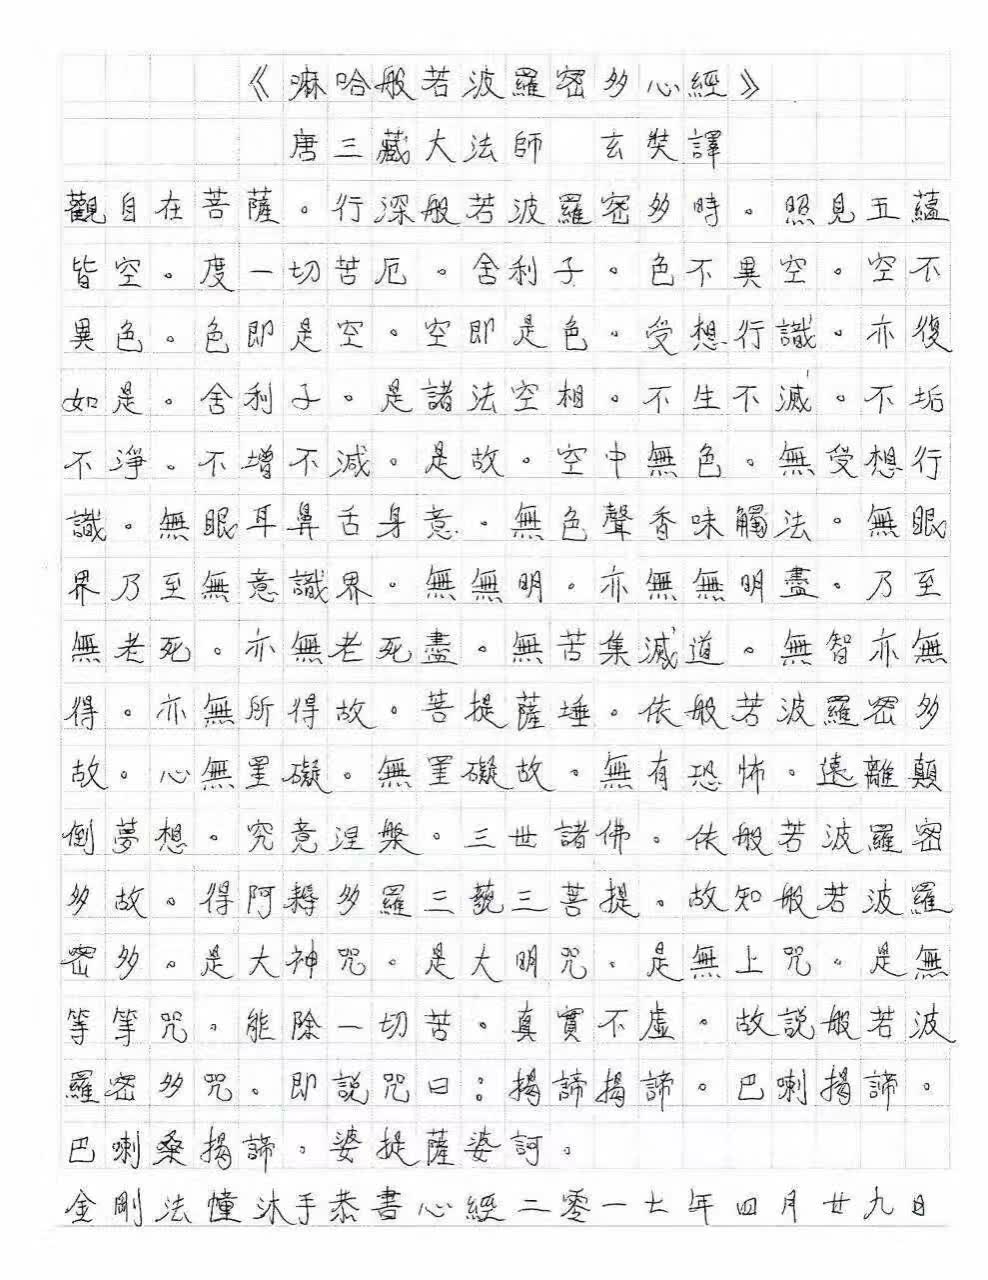 《嘛哈般若波羅密多心經》
唐三藏大法師 玄奘譯
觀自在菩薩。行深般若波羅密多時。照見五蘊
皆空。度一切苦厄。舍利子。色不異空。空不
異色。色即是空。空即是色。受想行識。亦復
如是。舍利子。是諸法空相。不生不滅。不垢
不淨。不增不減。是故。空中無色。無受想行
識。無眼耳鼻舌身意。無色聲香味觸法。無眼
界乃至無意識界。無無明。亦無無明盡。乃至
無老死。亦無老死盡。無苦集滅道。無智亦無
得。亦無所得故。菩提薩埵。依般若波羅密多
故。心無罣礙。無罣礙故。無有恐怖。遠離顛
倒夢想。究竟涅槃。三世諸佛。依般若波羅密
多故。得阿耨多羅三藐三菩提。故知般若波羅
密多。是大神咒。是大明咒。是無上咒。是無
等等咒。能除一切苦。真實不虛。故說般若波
羅密多咒。即說咒曰：揭諦揭諦。巴喇揭諦。
巴喇桑揭諦。婆提薩婆訶。
金剛法幢沐手恭書心經二零一七年四月廿九日